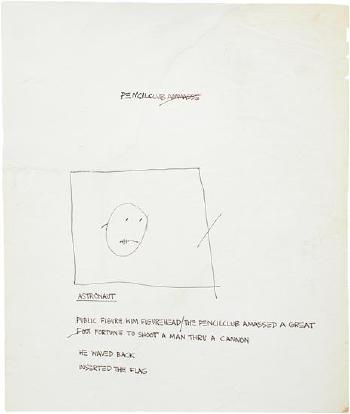 PENCILCLUB AMMASSE
ASTRONAUT
PUBLIC FIGURE HIM FIGUREHEAD/THE PENCILCLUB AMASSED A GREAT
FORTUNE TO SHOOT A MAN THRU A CANNON
HE WAVED BACK
INSERTED THE FLAG